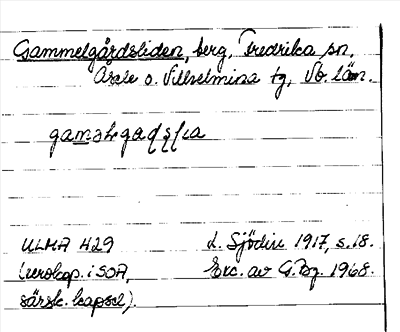 Gammelgårdsliden, berg, Fredrika sn,
Åsele o. Vilhelmina tg, Vb. län.
ULMA 429
L. Sjödin 1917, s. 18.
(verokop. i SOA,
Exc. av G. Bg. 1968.
särsk. kapsel)